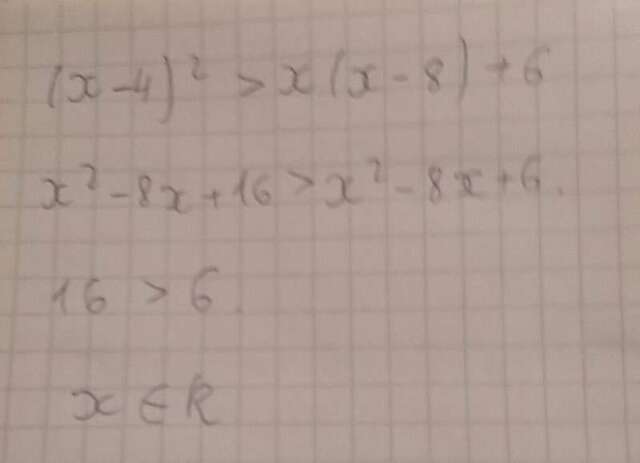 (x-4)² > x(x-8)+6
x²-8x+16 > x²-8x+6.
16 > 6.
x ∈ R